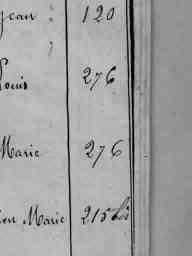 Jean 120
Louis 276
Marie 276
Marie 215 bis